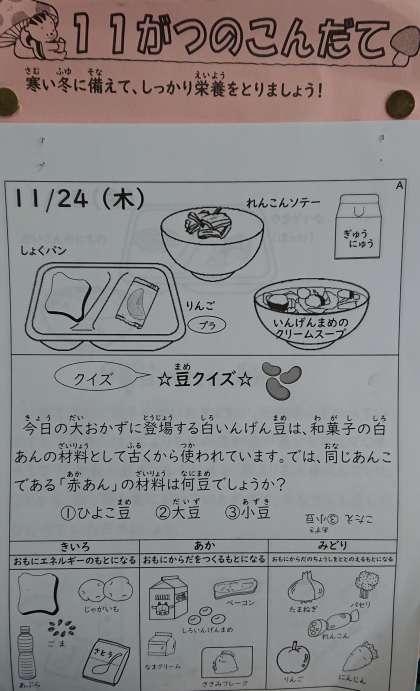 11がつのこんだて
寒い冬に備えて、しっかり栄養をとりましょう!
A
11/24(木)
れんこんソテー
ぎゅう
にゅう
しょくパン
りんご
プラ
いんげんまめの
クリームスープ
クイズ
☆豆クイズ☆
今日の大おかずに登場する白いんげん豆は、和菓子の白
あんの材料として古くから使われています。では、同じあんこ
である「赤あん」の材料は何豆でしょうか?
①ひよこ豆 ②大豆 ③小豆
こたえ ③小豆
きいろ
おもにエネルギーのもとになる
じゃがいも
ごま
さとう
あぶら
あか
おもにからだをつくるもとになる
ベーコン
しろいんげんまめ
なまクリーム
ささみフレーク
みどり
おもにからだのちょうしをととのえるもとになる
たまねぎ
パセリ
れんこん
りんご
にんじん